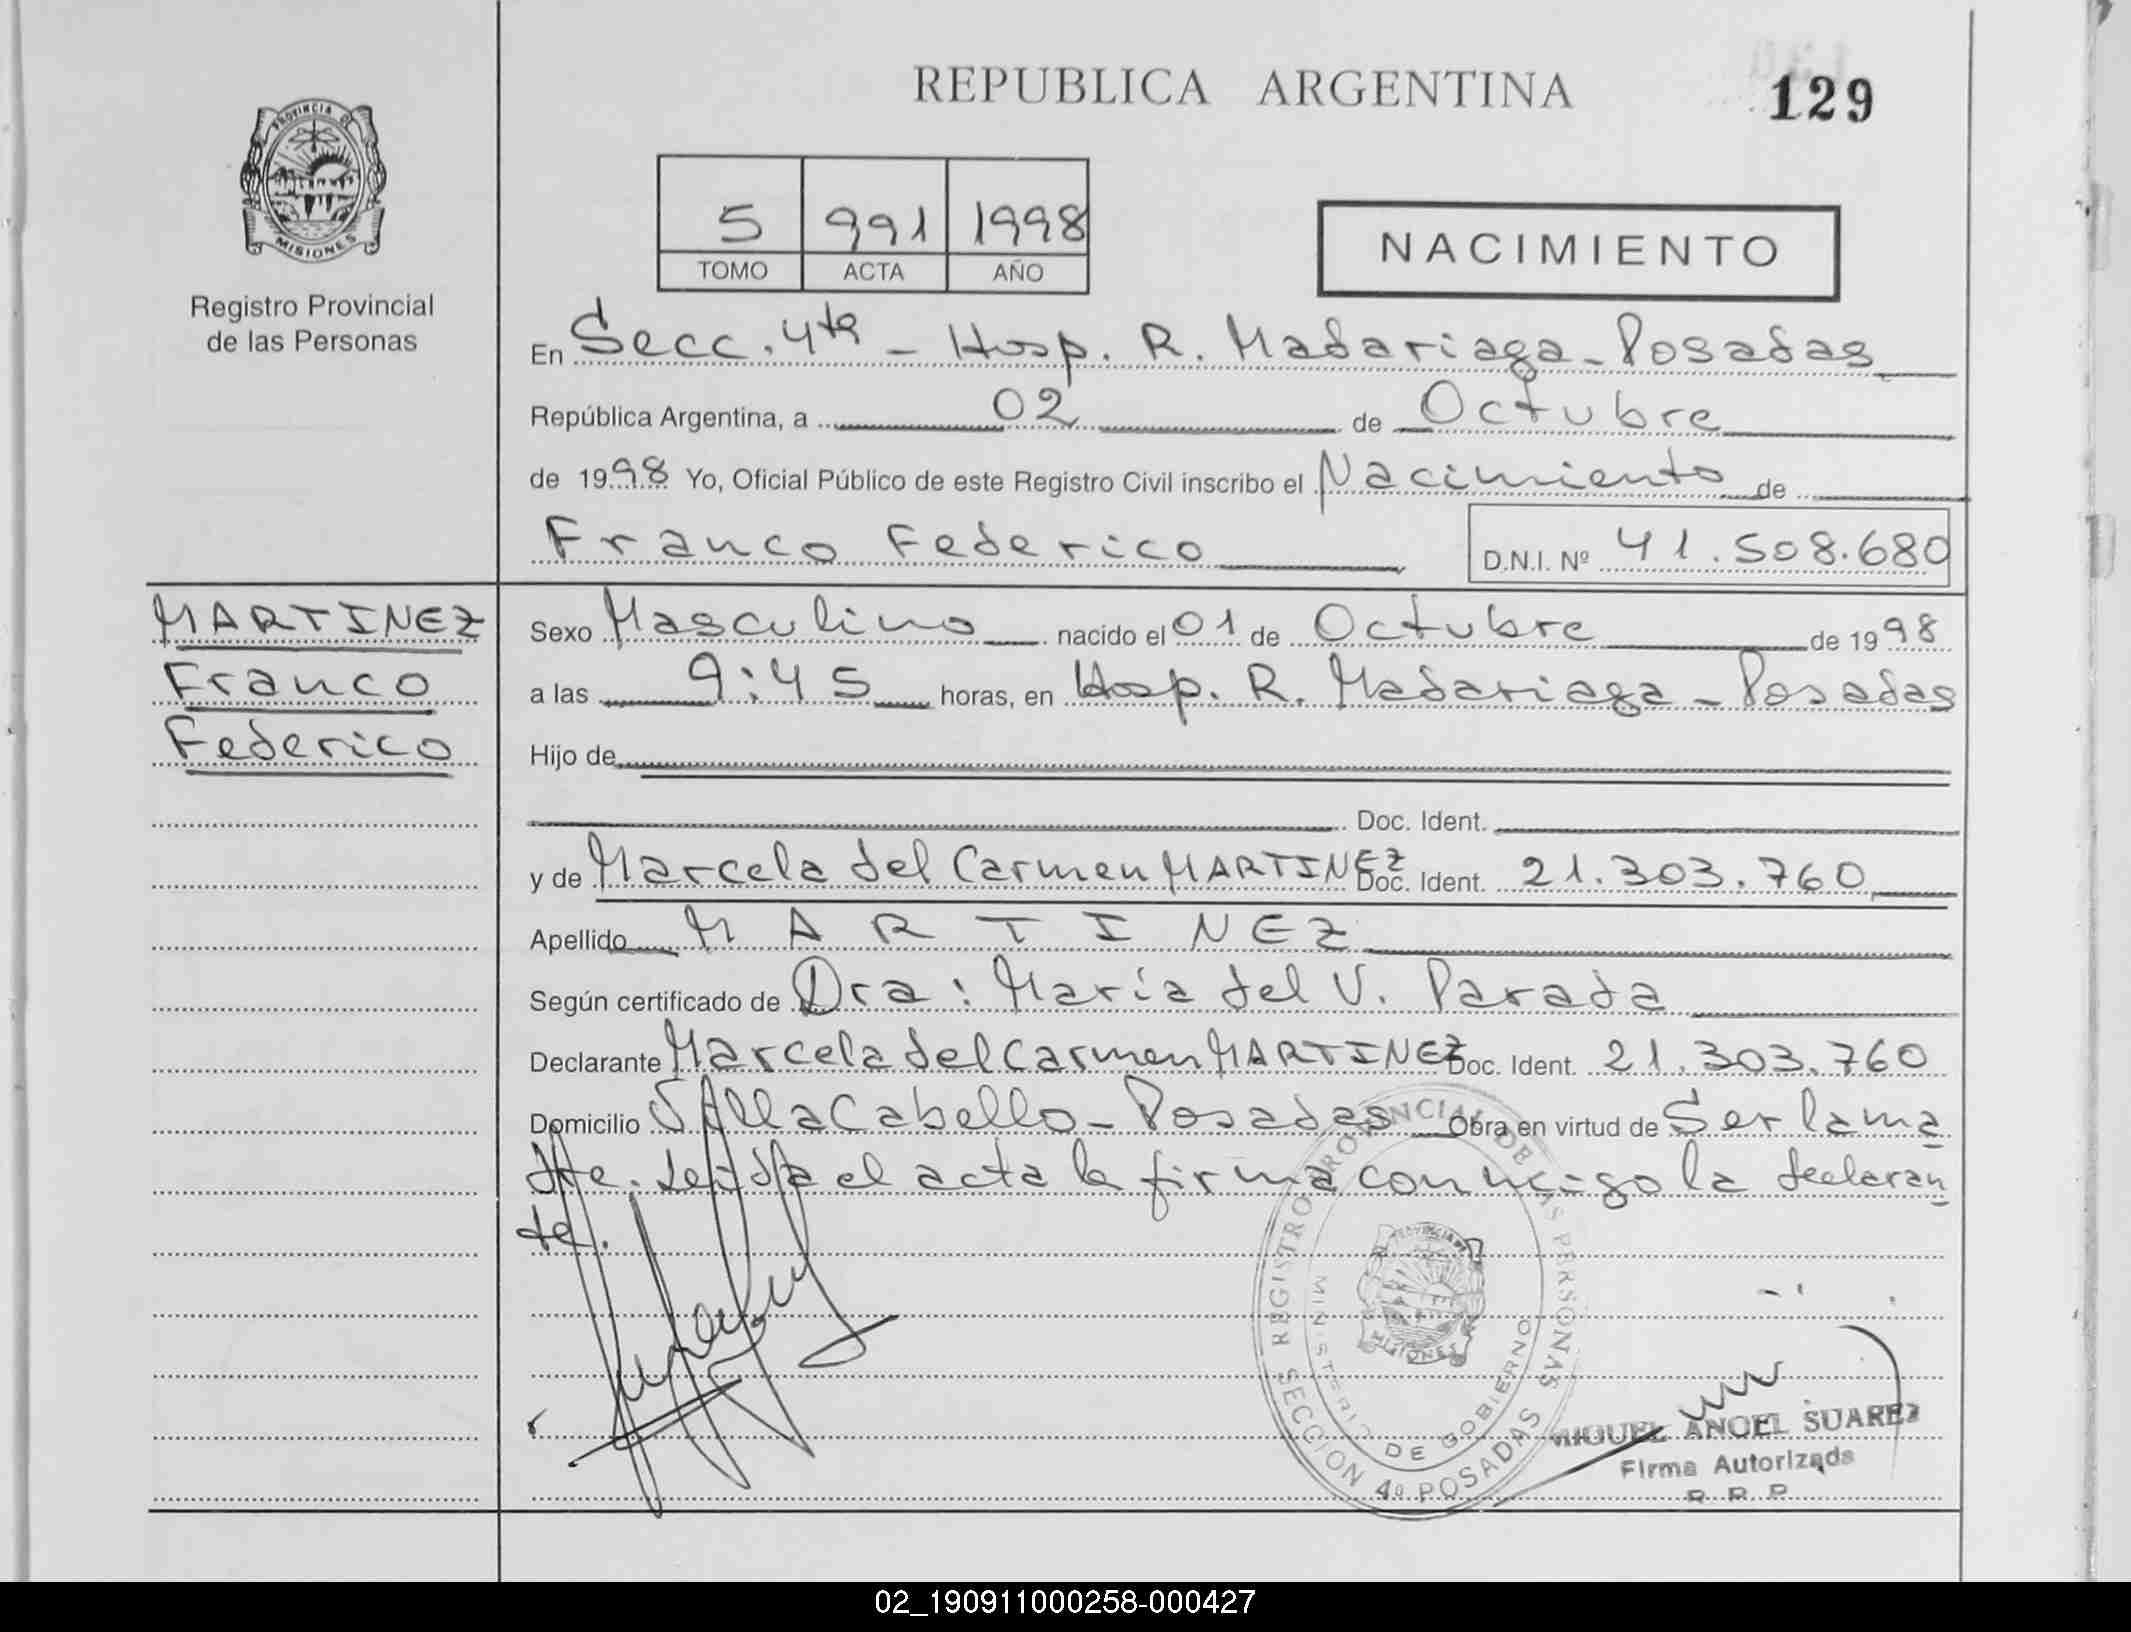 REPUBLICA ARGENTINA
129
PROVINCIA D
MISIONES
Registro Provincial
de las Personas
5 991 1998
TOMO ACTA AÑO
NACIMIENTO
En Secc. 4ta - Hosp. R. Madariaga - Posadas
República Argentina, a 02 de Octubre
de 1998 Yo, Oficial Público de este Registro Civil inscribo el Nacimiento de
Franco Federico D.N.I. Nº 41.508.680
MARTINEZ
Franco
Federico
Sexo Masculino nacido el 01 de Octubre de 1998
a las 9:45 horas, en Hosp. R. Madariaga - Posadas
Hijo de
Doc. Ident.
y de Marcela del Carmen MARTINEZ Doc. Ident. 21.303.760
Apellido MARTINEZ
Según certificado de Dra: María del V. Parada
Declarante Marcela del Carmen MARTINEZ Doc. Ident. 21.303.760
Domicilio Villa Cabello - Posadas Obra en virtud de Ser la ma
dre. Leida el acta la firma conmigo la declaran
te.
REGISTRO PROVINCIAL DE LAS PERSONAS
MINISTERIO DE GOBIERNO
SECCION 4º POSADAS
MISIONES
MIGUEL ANGEL SUAREZ
Firma Autorizada
R. R. P.
02_190911000258-000427